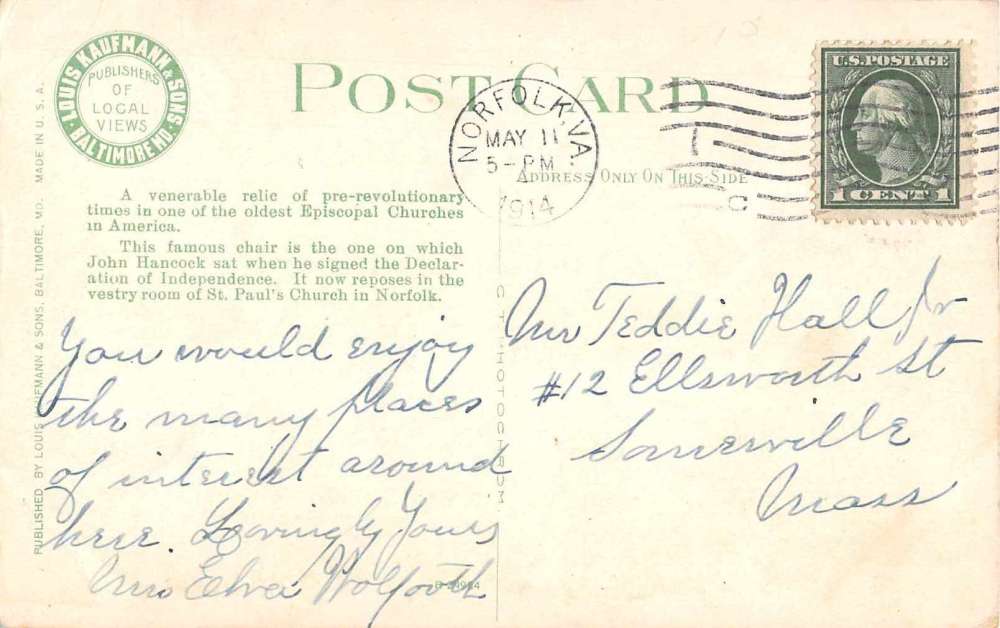 LOUIS KAUFMANN & SONS
BALTIMORE MD.
PUBLISHERS
OF
LOCAL
VIEWS
POST CARD
NORFOLK, VA.
MAY 11
5 - PM
1914
U.S. POSTAGE
1 CENT 1
ADDRESS ONLY ON THIS SIDE
A venerable relic of pre-revolutionary
times in one of the oldest Episcopal Churches
in America.
This famous chair is the one on which
John Hancock sat when he signed the Declar-
ation of Independence. It now reposes in the
vestry room of St. Paul's Church in Norfolk.
You would enjoy
the many places
of interest around
here. Lovingly Yours
Mrs
Mr Teddie Hall Jr
#12 Ellsworth St
Somerville
Mass
PUBLISHED BY LOUIS KAUFMANN & SONS, BALTIMORE, MD. MADE IN U. S. A.
C. T. PHOTOCHROM